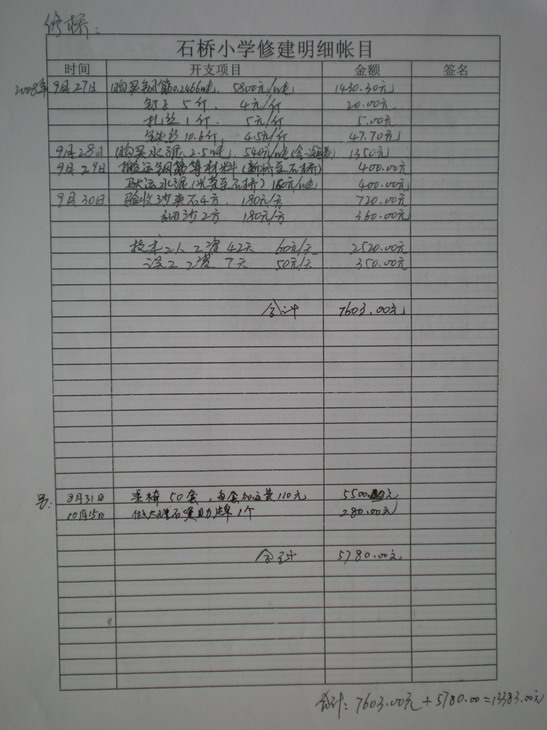 修桥:
石桥小学修建明细帐目
时间 开支项目 金额 签名
2008年 9月27日 购买钢筋0.2466吨, 5800元/吨 1430.30元
钉子5斤, 4元/斤 20.00元
扎丝1斤, 5元/斤 5.00元
铁丝10.6斤, 4.5元/斤 47.70元
9月28日 购买水泥, 2.5吨, 540元/吨 1350元
9月29日 搬运钢筋等材料 400.00元
水泥 160元/吨 400.00元
9月30日 验收沙夹石4方, 180元/方 720.00元
细沙2方 180元/方 360.00元
技术工人工资42天 60元/天 2520.00元
工资7天 50元/天 350.00元
合计 7603.00元
9月31日 课椅50套, 每套加运费110元 5500元
10月15日 1个 280.00元
合计 5780.00元
合计: 7603.00元+5780.00=13383.00元